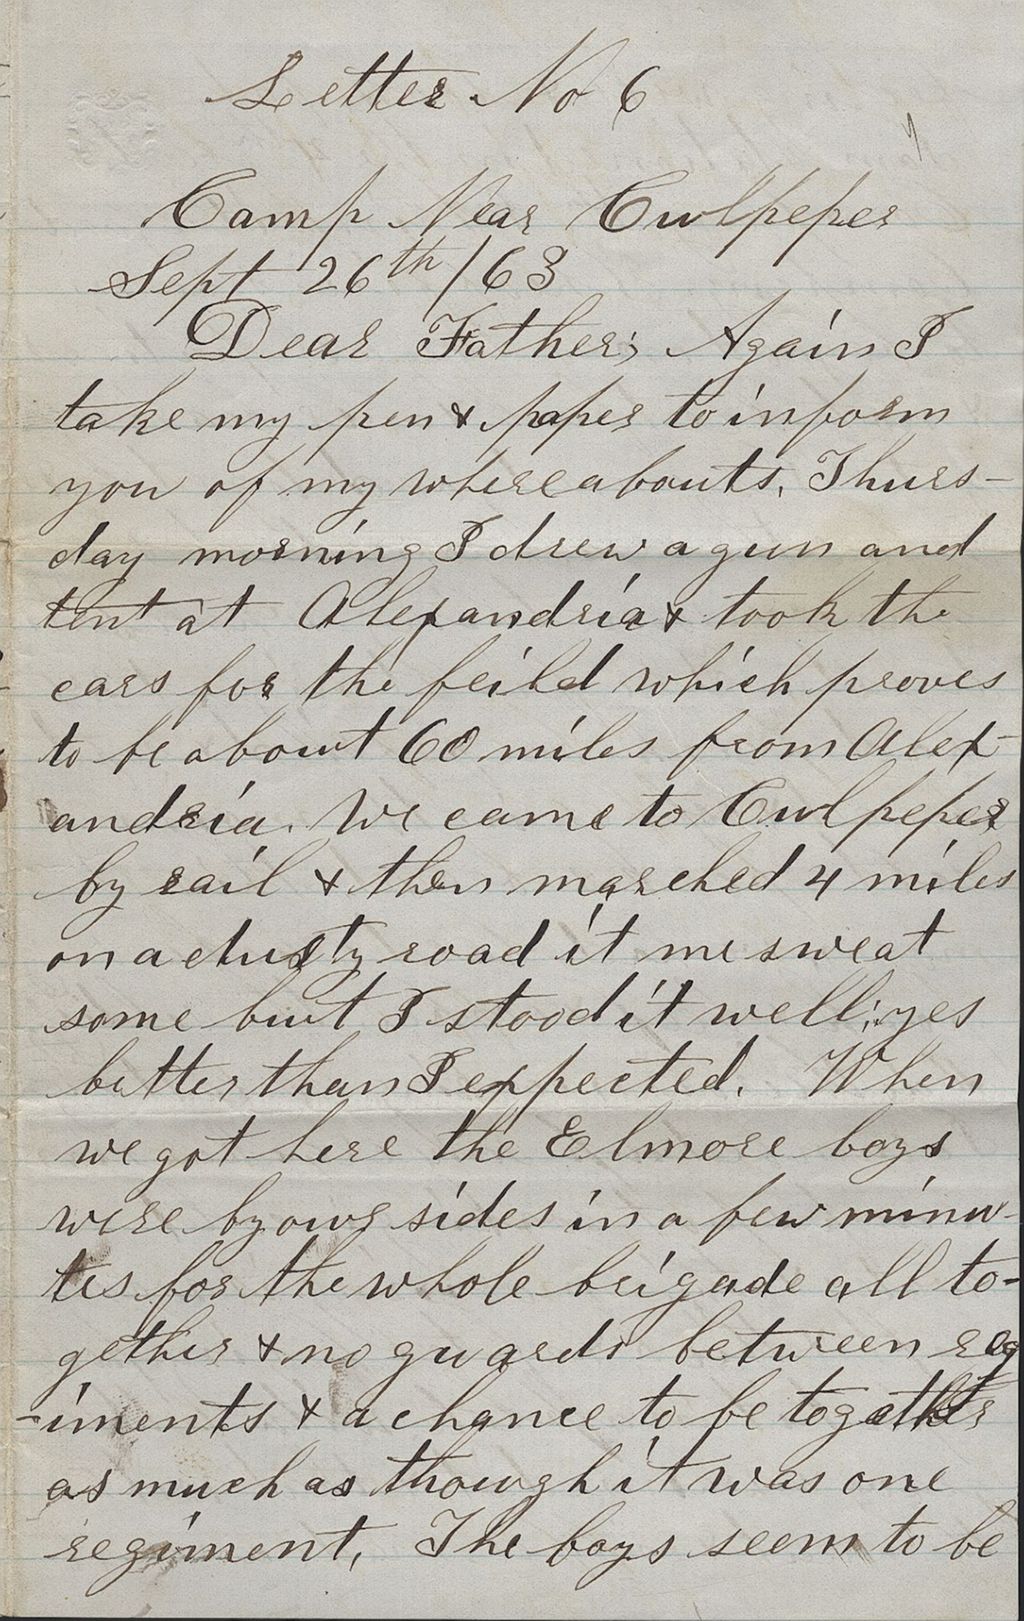 Letter No 6
Camp Near Culpeper
Sept 26th /63
Dear Father; Again I
take my pen & paper to inform
you of my whereabouts. Thurs-
day morning I drew a gun and
tent at Alexandria & took the
cars for the feild which proves
to be about 60 miles from Alex-
andria. We came to Culpeper
by rail & then marched 4 miles
on a dusty road it me sweat
some but I stood it well; yes
better than I expected. When
we got here the Elmore boys
were by our sides in a few minu-
tes for the whole brigade all to-
gether & no guards between reg
-iments & a chance to be together
as much as though it was one
regiment. The boys seem to be